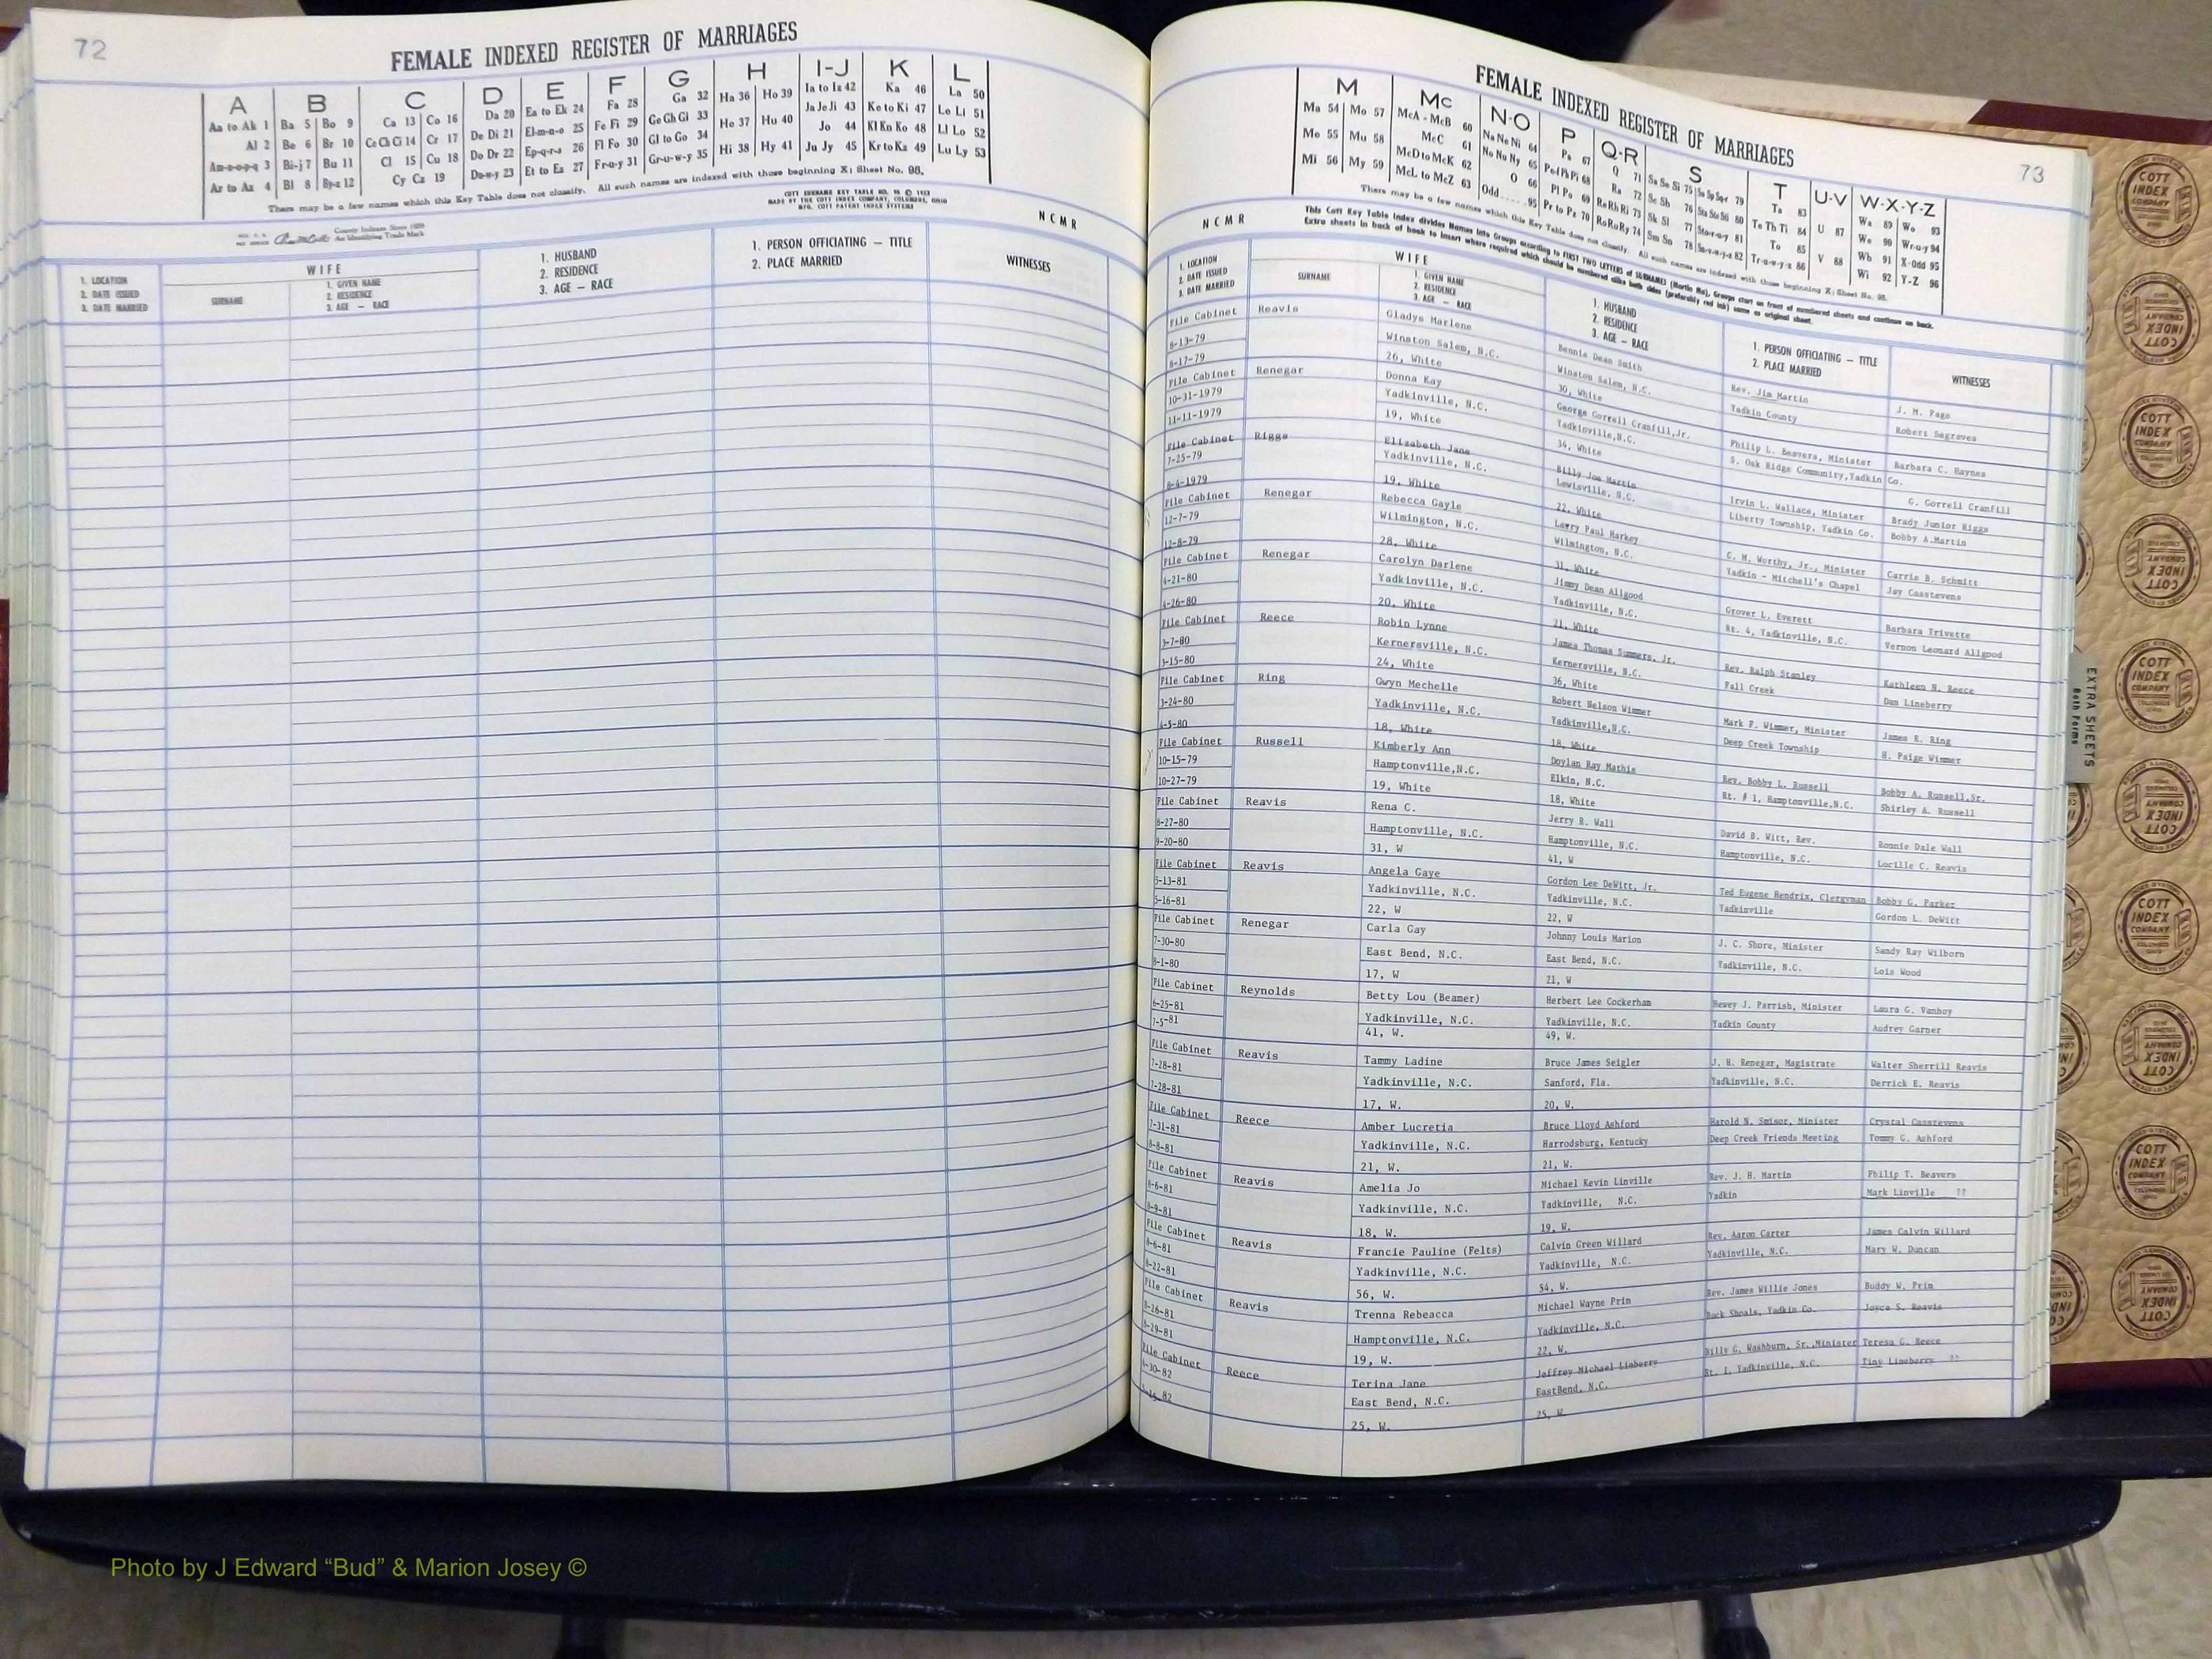 72
FEMALE INDEXED REGISTER OF MARRIAGES
A B C D E F G H I-J K L
Aa to Ak 1 Ba 5 Bo 9 Ca 13 Co 16 Da 20 Ea to Ek 24 Fa 28 Ga 32 Ha 36 Ho 39 Ia to Iz 42 Ka 46 La 50
Al 2 Be 6 Br 10 Ce Ch Ci 14 Cr 17 De Di 21 El-m-n-o 25 Fe Fi 29 Ge Gh Gi 33 He 37 Hu 40 Ja Je Ji 43 Ke to Ki 47 Le Li 51
Am-o-o-p-q 3 Bi-j 7 Bu 11 Cl 15 Cu 18 Do Dr 22 Ep-q-r-s 26 Fl Fo 30 Gl to Go 34 Hi 38 Hy 41 Jo 44 Kl Kn Ko 48 Ll Lo 52
Ar to Az 4 Bl 8 By-z 12 Cy Cz 19 Du-w-y 23 Et to Ez 27 Fr-u-y 31 Gr-u-w-y 35 Ju Jy 45 Kr to Kz 49 Lu Ly 53
There may be a few names which this Key Table does not classify. All such names are indexed with those beginning X; Sheet No. 95.
County Indexes Since 1888
An Identifying Trade Mark
MADE BY THE COTT INDEX COMPANY, COLUMBUS, OHIO
N C M R
1. LOCATION
2. DATE ISSUED
3. DATE MARRIED
WIFE
SURNAME
1. GIVEN NAME
2. RESIDENCE
3. AGE — RACE
1. HUSBAND
2. RESIDENCE
3. AGE — RACE
1. PERSON OFFICIATING — TITLE
2. PLACE MARRIED
WITNESSES
FEMALE INDEXED REGISTER OF MARRIAGES
73
M Mc N-O P Q-R S T U-V W-X-Y-Z
Ma 54 Mo 57 McA - McB 60 Na Ne Ni 64 Pa 67 Q 71 Sa Sc Si 75 Ta 83 U 87 Wa 89 Wo 93
Me 55 Mu 58 McC 61 No Nu Ny 65 Pe-f Ph Pi 68 Ra 72 Se Sh 76 Te Th Ti 84 We 90 Wr-u-y 94
Mi 56 My 59 McD to McK 62 O 66 Pl Po 69 Re Rh Ri 73 Sk Sl 77 To 85 V 88 Wh 91 X-Odd 95
McL to McZ 63 Odd 95 Pr to Pz 70 Ro Ru Ry 74 Sm Sn 78 Tr-u-w-y-z 86 Wi 92 Y-Z 96
There may be a few names which this Key Table does not classify. All such names are indexed with those beginning X; Sheet No. 95.
N C M R
This Cott Key Table Index divides Names into Groups according to FIRST TWO LETTERS of SURNAMES (Martin Ma), Groups start on front of numbered sheets and continue on back.
Extra sheets in back of book to insert where required which should be numbered alike both sides (preferably red ink) same as original sheet.
1. LOCATION
2. DATE ISSUED
3. DATE MARRIED
WIFE
SURNAME
1. GIVEN NAME
2. RESIDENCE
3. AGE — RACE
1. HUSBAND
2. RESIDENCE
3. AGE — RACE
1. PERSON OFFICIATING — TITLE
2. PLACE MARRIED
WITNESSES
File Cabinet Reavis Gladys Marlene Bennie Dean Smith Rev. Jim Martin J. M. Page
8-13-79 Winston Salem, N.C. Winston Salem, N.C. Yadkin County Robert Segraves
8-17-79 26, White 30, White
File Cabinet Renegar Donna Kay George Gorrell Cranfill,Jr. Philip L. Beavers, Minister Barbara C. Haynes
10-31-1979 Yadkinville, N.C. Yadkinville,N.C. S. Oak Ridge Community,Yadkin Co. G. Gorrell Cranfill
11-11-1979 19, White 34, White
File Cabinet Riggs Elizabeth Jane Billy Joe Martin Irvin L. Wallace, Minister Brady Junior Riggs
7-25-79 Yadkinville, N.C. Lewisville, N.C. Liberty Township, Yadkin Co. Bobby A.Martin
8-4-1979 19, White 22, White
File Cabinet Renegar Rebecca Gayle Larry Paul Harkey C. M. Worthy, Jr., Minister Carrie B. Schmitt
12-7-79 Wilmington, N.C. Wilmington, N.C. Yadkin - Mitchell's Chapel Jay Casstevens
12-8-79 28, White 31, White
File Cabinet Renegar Carolyn Darlene Jimmy Dean Allgood Grover L. Everett Barbara Trivette
4-21-80 Yadkinville, N.C. Yadkinville, N.C. Rt. 4, Yadkinville, N.C. Vernon Leonard Allgood
4-26-80 20, White 21, White
File Cabinet Reece Robin Lynne James Thomas Summers, Jr. Rev. Ralph Stanley Kathleen N. Reece
3-7-80 Kernersville, N.C. Kernersville, N.C. Fall Creek Dan Lineberry
3-15-80 24, White 36, White
File Cabinet Ring Gwyn Mechelle Robert Nelson Wimmer Mark P. Wimmer, Minister James R. Ring
3-24-80 Yadkinville, N.C. Yadkinville,N.C. Deep Creek Township H. Paige Wimmer
4-5-80 18, White 18, White
File Cabinet Russell Kimberly Ann Doylan Ray Mathis Rev. Bobby L. Russell Bobby A. Russell,Sr.
10-15-79 Hamptonville,N.C. Elkin, N.C. Rt. # 1, Hamptonville,N.C. Shirley A. Russell
10-27-79 19, White 18, White
File Cabinet Reavis Rena C. Jerry B. Wall David B. Witt, Rev. Ronnie Dale Wall
8-27-80 Hamptonville, N.C. Hamptonville, N.C. Hamptonville, N.C. Lucille C. Reavis
9-20-80 31, W 41, W
File Cabinet Reavis Angela Gaye Gordon Lee DeWitt, Jr. Ted Eugene Hendrix, Clergyman Bobby G. Parker
5-13-81 Yadkinville, N.C. Yadkinville, N.C. Yadkinville Gordon L. DeWitt
5-16-81 22, W 22, W
File Cabinet Renegar Carla Gay Johnny Louis Marion J. C. Shore, Minister Sandy Ray Wilborn
7-30-80 East Bend, N.C. East Bend, N.C. Yadkinville, N.C. Lois Wood
8-1-80 17, W 21, W
File Cabinet Reynolds Betty Lou (Beamer) Herbert Lee Cockerham Dewey J. Parrish, Minister Laura G. Vanhoy
6-25-81 Yadkinville, N.C. Yadkinville, N.C. Yadkin County Audrey Garner
7-5-81 41, W. 49, W.
File Cabinet Reavis Tammy Ladine Bruce James Seigler J. H. Renegar, Magistrate Walter Sherrill Reavis
7-28-81 Yadkinville, N.C. Sanford, Fla. Yadkinville, N.C. Derrick E. Reavis
7-28-81 17, W. 20, W.
File Cabinet Reece Amber Lucretia Bruce Lloyd Ashford Harold N. Smisor, Minister Crystal Casstevens
7-31-81 Yadkinville, N.C. Harrodsburg, Kentucky Deep Creek Friends Meeting Tommy G. Ashford
8-8-81 21, W. 21, W.
File Cabinet Reavis Amelia Jo Michael Kevin Linville Rev. J. H. Martin Philip T. Beavers
8-6-81 Yadkinville, N.C. Yadkinville, N.C. Yadkin Mark Linville ??
8-9-81 18, W. 19, W.
File Cabinet Reavis Francie Pauline (Felts) Calvin Green Willard Rev. Aaron Carter James Calvin Willard
8-6-81 Yadkinville, N.C. Yadkinville, N.C. Yadkinville, N.C. Mary W. Duncan
8-22-81 56, W. 54, W.
File Cabinet Reavis Trenna Rebeacca Michael Wayne Prin Rev. James Willie Jones Buddy W. Prim
8-26-81 Hamptonville, N.C. Yadkinville, N.C. Buck Shoals, Yadkin Co. Joyce S. Reavis
8-29-81 19, W. 22, W.
File Cabinet Reece Terina Jane Jeffrey Michael Lineberry Billy G. Washburn, Sr.,Minister Teresa G. Reece
4-30-82 East Bend, N.C. EastBend, N.C. Rt. 1, Yadkinville, N.C. Tiny Lineberry ??
25, W. 25, W
EXTRA SHEETS
Both Forms
COTT INDEX COMPANY
Photo by J Edward “Bud” & Marion Josey ©